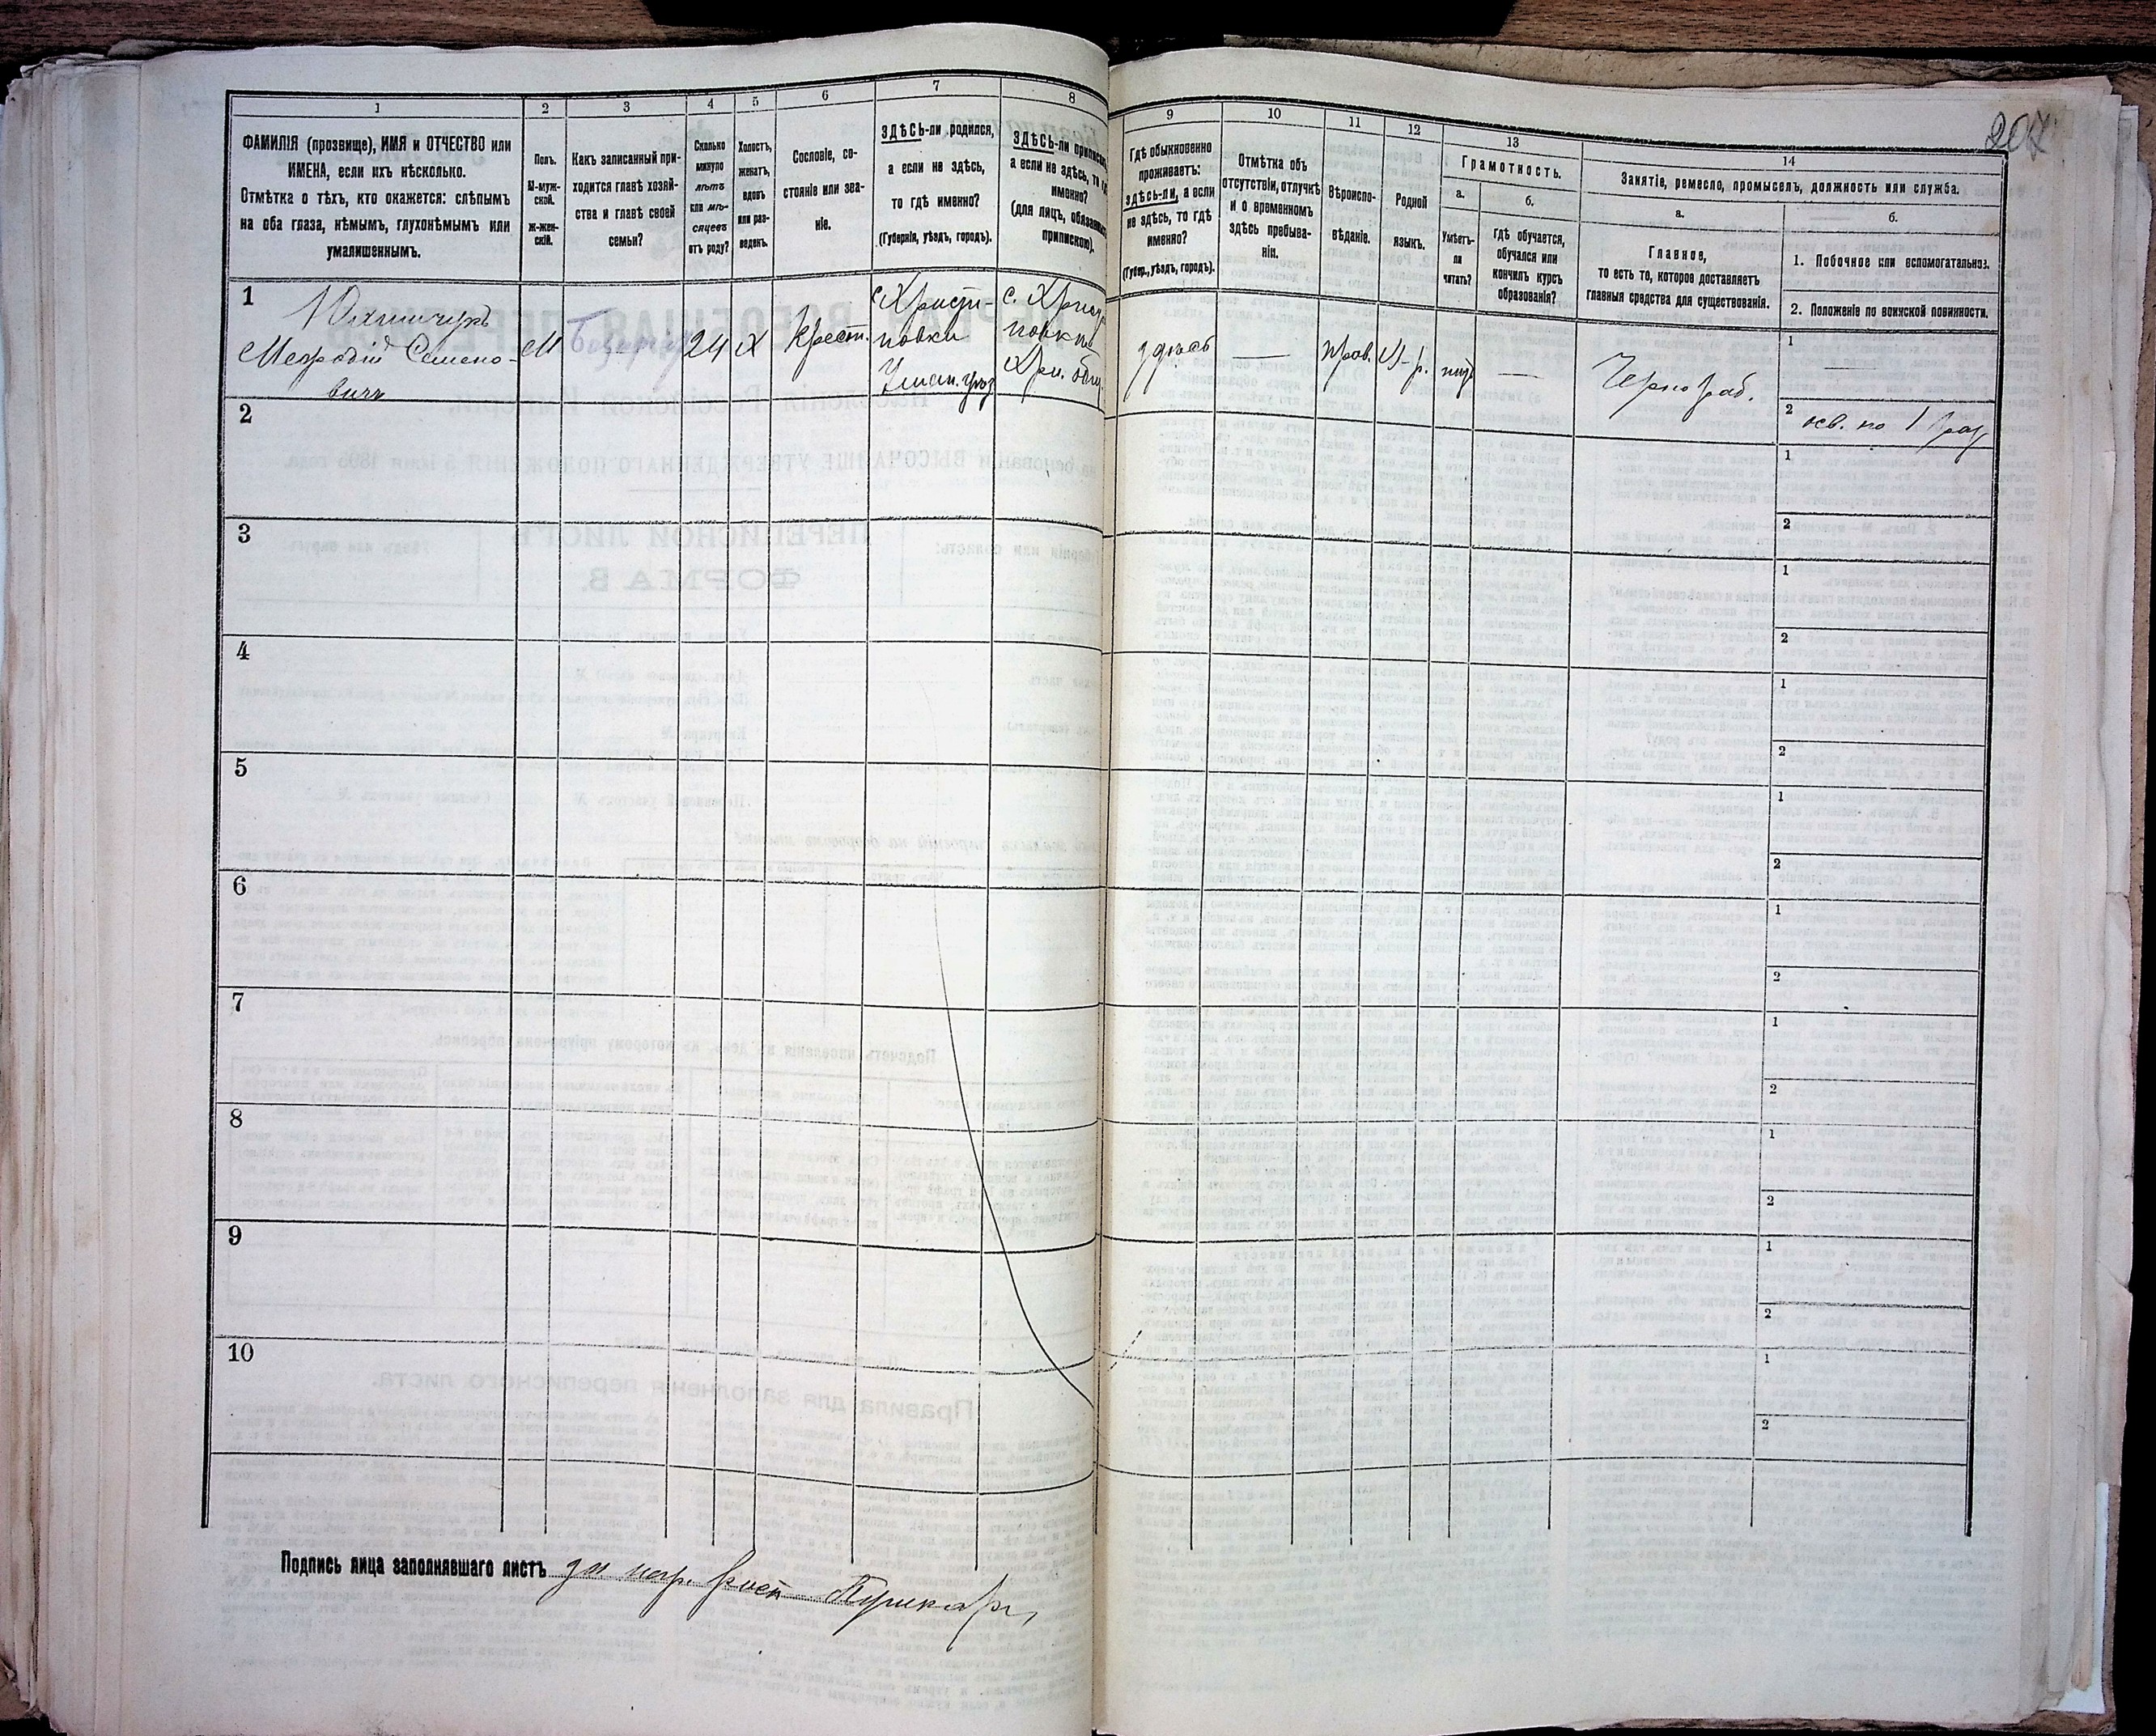 207
1
2
3
4
5
6
7
8
9
10
11
12
13
14
ФАМИЛІЯ (прозвище), ИМЯ и ОТЧЕСТВО или
ИМЕНА, если ихъ нѣсколько.
Отмѣтка о тѣхъ, кто окажется: слѣпымъ
на оба глаза, нѣмымъ, глухонѣмымъ или
умалишеннымъ.
Полъ.
М-муж-
ской.
ж-жен-
скій.
Какъ записанный при-
ходится главѣ хозяй-
ства и главѣ своей
семьи?
Сколько
минуло
лѣтъ
или мѣ-
сяцевъ
отъ роду?
Холостъ,
женатъ,
вдовъ
или раз-
веденъ.
Сословіе, со-
стояніе или зва-
ніе.
ЗДѢСЬ-ли родился,
а если не здѣсь,
то гдѣ именно?
(Губернія, уѣздъ, городъ).
ЗДѢСЬ-ли приписанъ,
а если не здѣсь, то гдѣ
именно?
(для лицъ, обязанныхъ
припискою).
Гдѣ обыкновенно
проживаетъ:
здѣсь-ли, а если
не здѣсь, то гдѣ
именно?
(Губер., уѣздъ, городъ).
Отмѣтка объ
отсутствіи, отлучкѣ
и о временномъ
здѣсь пребыва-
ніи.
Вѣроиспо-
вѣданіе.
Родной
языкъ.
Грамотность.
а.
Умѣетъ-
ли
читать?
б.
гдѣ обучается,
обучался или
кончилъ курсъ
образованія?
Занятіе, ремесло, промыселъ, должность или служба.
а.
Главное,
то есть то, которое доставляетъ
главныя средства для существованія.
б.
1. Побочное или вспомогательное.
2. Положеніе по воинской повинности.
1
Меѳодій Семено-
вичъ
М
24
Х
Крест.
с. Христи-
новки
Уман. уѣз
с. Христ
новки
Хри. общ.
здѣсь
—
прав.
—
Чернораб.
1
—
2 осв. по 1 раз
2
1
2
3
1
2
4
1
2
5
1
2
6
1
2
7
1
2
8
1
2
9
1
2
10
1
2
Подпись лица заполнявшаго листъ